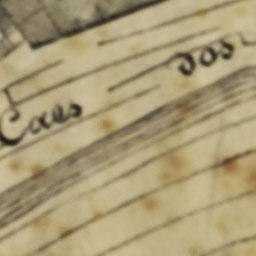 Caes dos